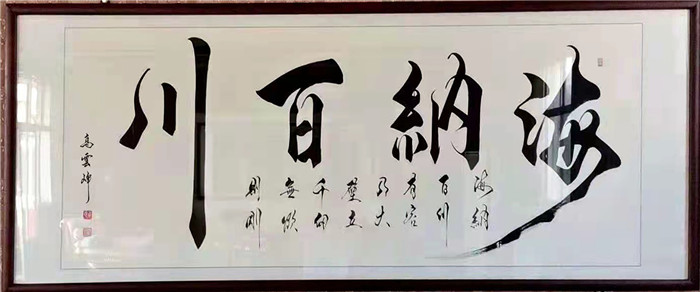 海納百川
海納
百川
有容
乃大
壁立
千仞
無欲
則剛
高雲